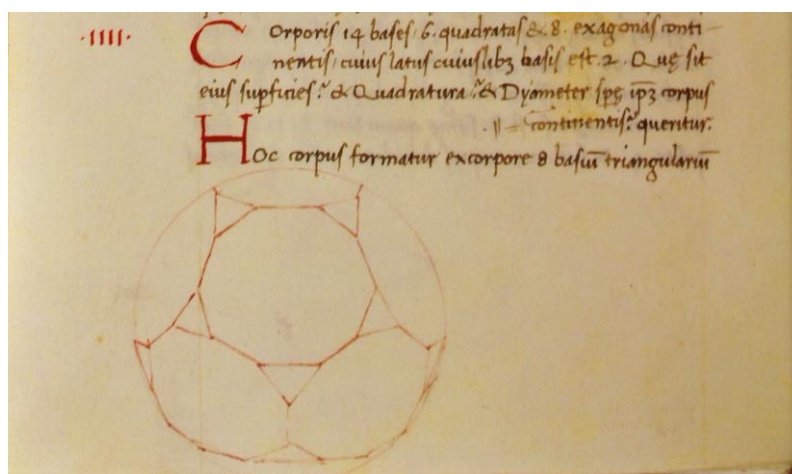 ·IIII· Corporis 14 bases, 6. quadratas & .8. exagonas conti-
nentis, cuius latus cuiuslibꝫ basis est .2. Quę sit
eius suꝑficies? & Quadratura? & Dyameter spę ip̄ꝫ corpus
continentis? queritur.
Hoc corpus formatur ex corpore 8 basiū triangulariū